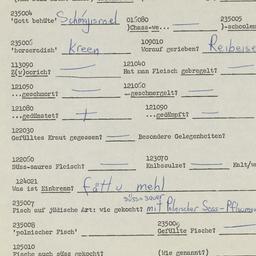 235004 016080 235005
'Gott behüte' Schmajisroel )Chass-we... — )-scholem
235006 109010
'horseradish' Kreen Worauf gerieben? Reibeise
113090 121040
Z(w)orich? — Hat man Fleisch gebregelt? —
121050 121060
...geschmort? — —geschmergelt? —
121080 121090
...gedünstet? + ...gedämpft? —
122030
Gefülltes Kraut gegessen? — Besondere Gelegenheiten?
122060 123070
Süss-saures Fleisch? — Kalbssulze? — Kalt/w
124021
Was ist Einbrenn? fätt u mehl
235007 süss=sauer
Fisch auf jüdische Art: wie gekocht? mit Polnischer Soss-Pflaumen
235008 235009
'polnischer Fisch' Gefüllte Fische? —
125010
Fische auch süss gekocht? (Wie genannt?)